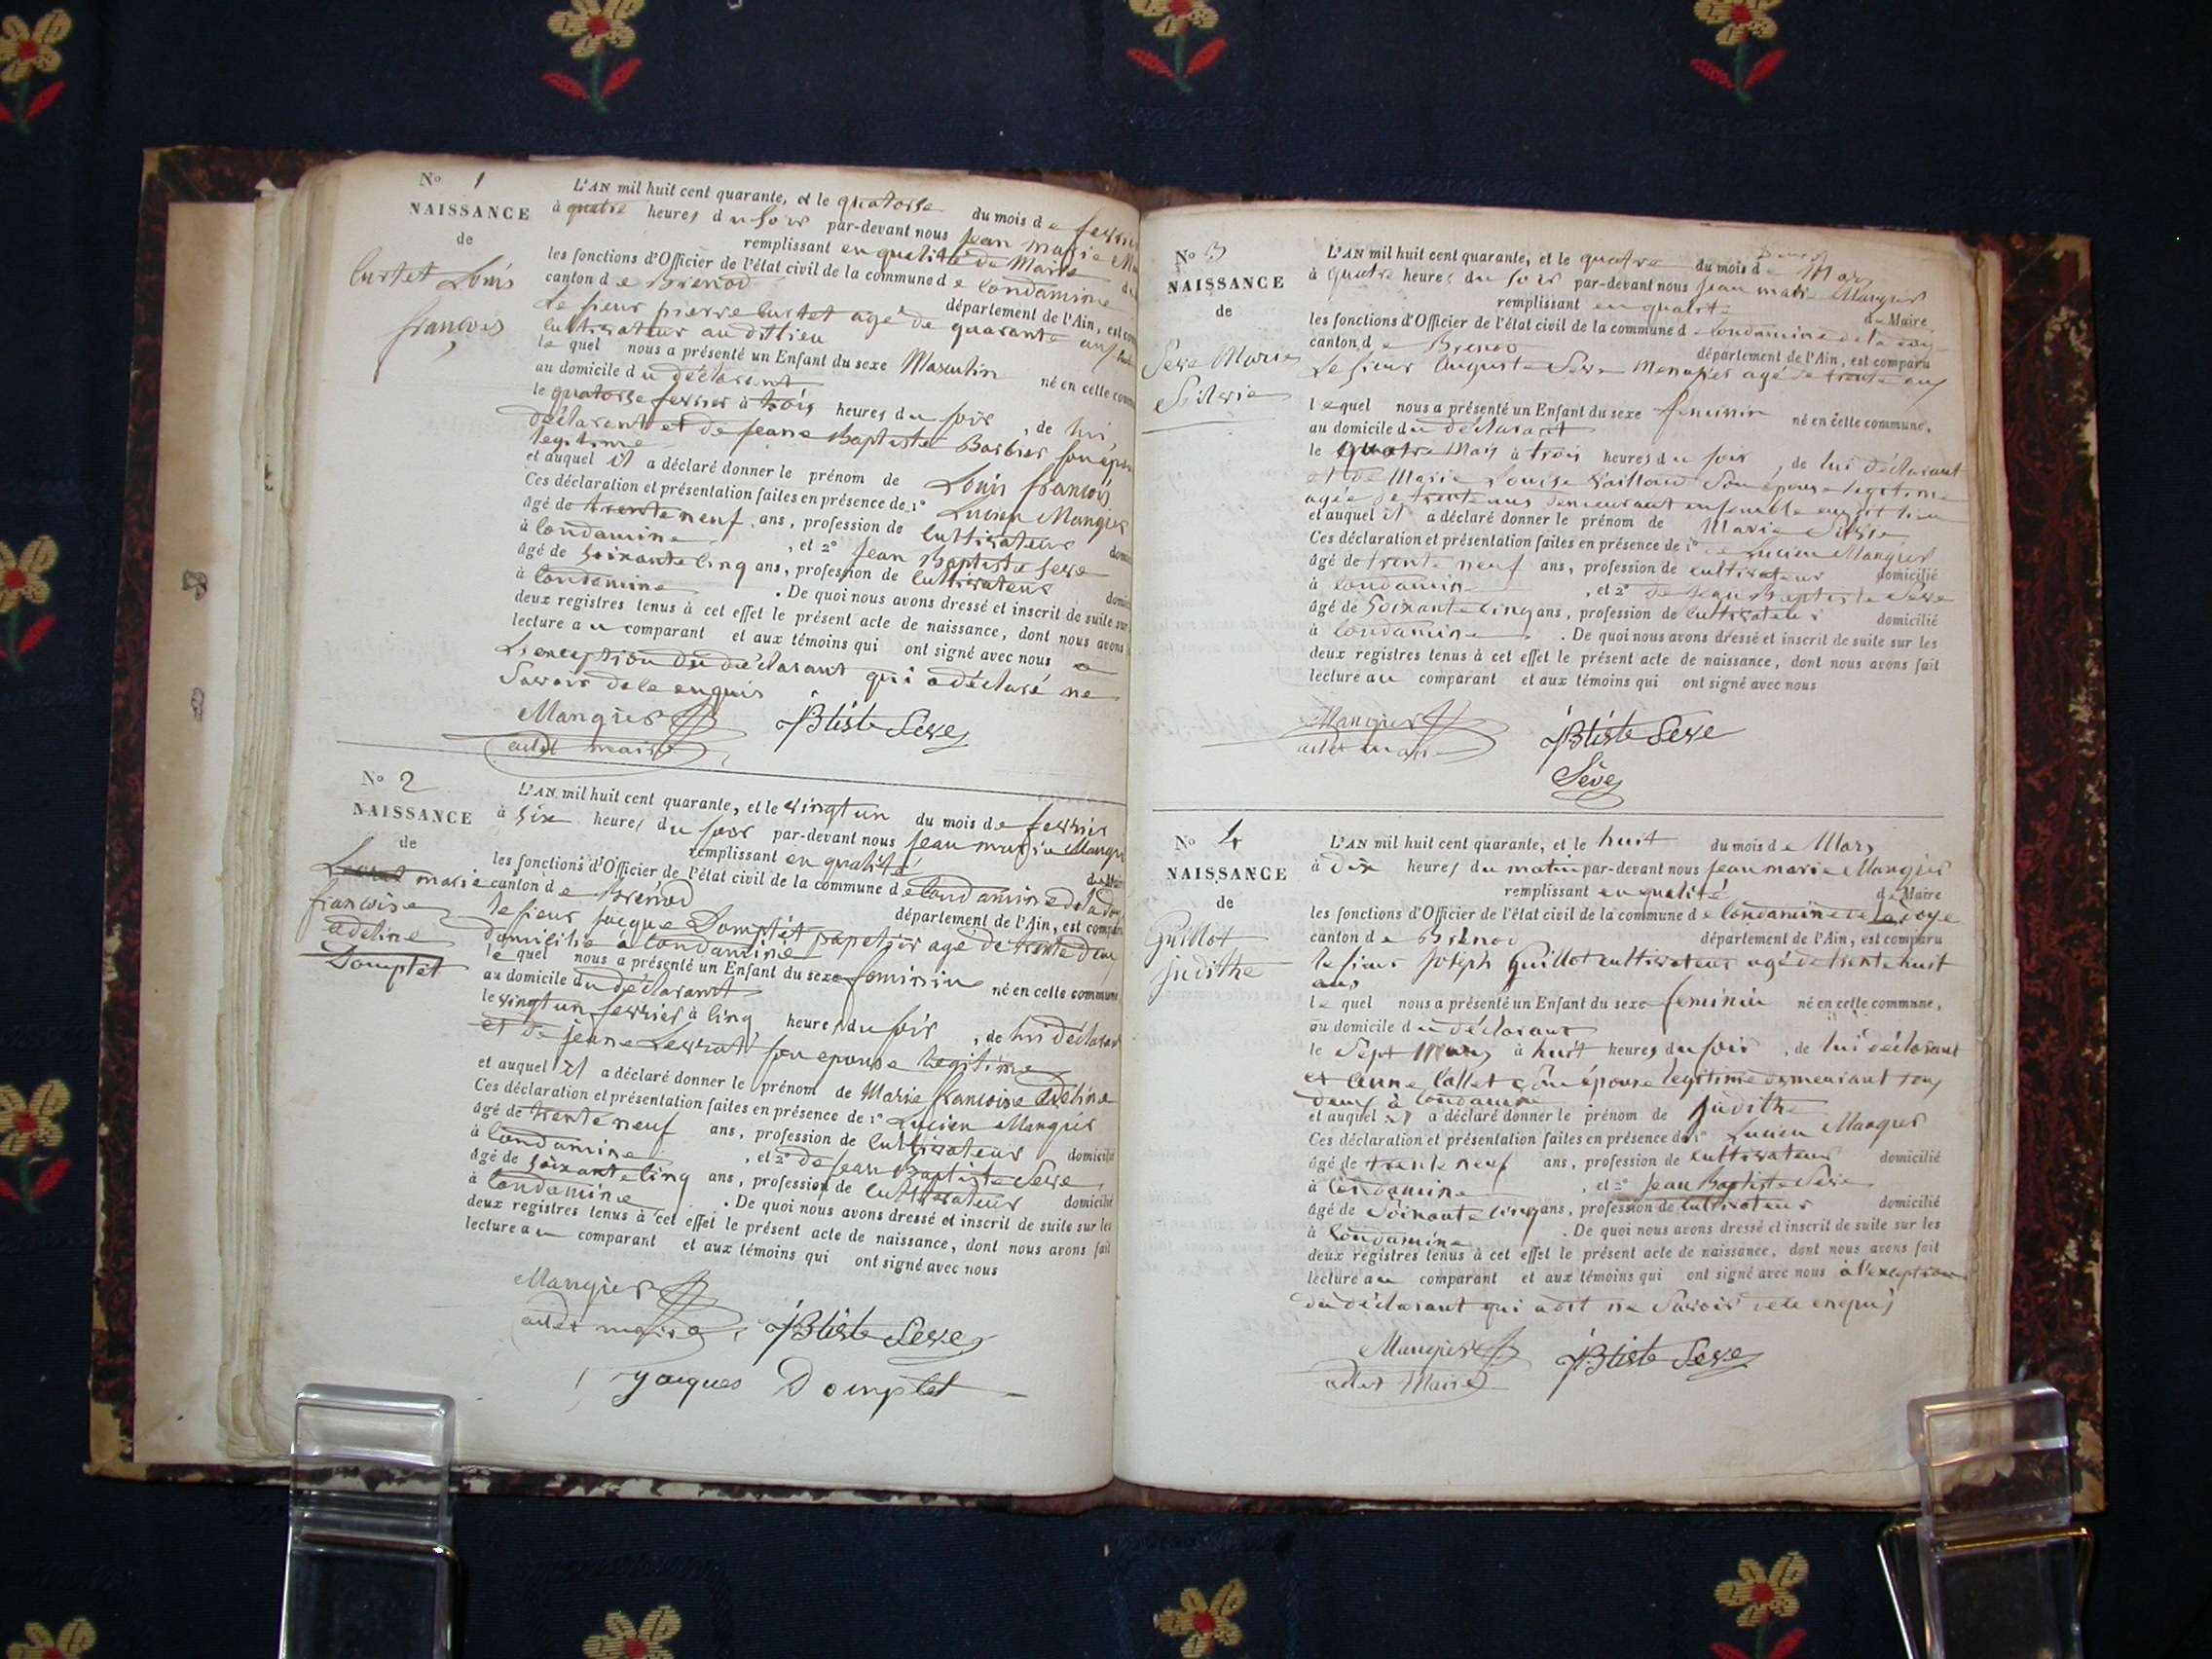 N° 1
NAISSANCE
de
Curtet Louis
françois
L'AN mil huit cent quarante, et le quatorse du mois de fevrier
à quatre heures du soir par-devant nous jean marie
remplissant en qualité de Maire
les fonctions d'Officier de l'état civil de la commune de Condamine
canton de Brenod département de l'Ain, est
Le sieur pierre Curtet agé de quarante ans
cultivateur au dit lieu
le quel nous a présenté un Enfant du sexe Masculin né en cette
au domicile du déclarant
le quatorse fevrier à trois heures du soir, de lui,
déclarant et de jeane Baptiste Barbier son
legitime
et auquel il a déclaré donner le prénom de Louis françois
Ces déclaration et présentation faites en présence de 1° Lucien Mangier
âgé de trente neuf ans, profession de cultivateur
à Condamine, et 2° jean Baptiste Seve
âgé de soixante cinq ans, profession de cultivateur
à Condamine. De quoi nous avons dressé et inscrit de suite sur
deux registres tenus à cet effet le présent acte de naissance, dont nous avons
lecture au comparant et aux témoins qui ont signé avec nous a
L'exception du déclarant qui a déclaré ne
Savoir de le enquis
Mangier JBtiste Seve
adet maire
N° 2
NAISSANCE
de
marie
francoise
adeline
Domptet
L'AN mil huit cent quarante, et le vingt un du mois de fevrier
à six heures du soir par-devant nous jean marie Mangier
remplissant en qualité de Maire
les fonctions d'Officier de l'état civil de la commune de Condamine de la doy
canton de Brénod département de l'Ain, est comparu
le sieur jacque Domptet papetier agé de trente deux
domicilié à Condamine
le quel nous a présenté un Enfant du sexe feminin né en cette commune
au domicile du déclarant
le vingt un fevrier à cinq heures du soir, de lui déclarant
et de jeane Levrat son epouse legitime
et auquel il a déclaré donner le prénom de Marie francoise adeline
Ces déclaration et présentation faites en présence de 1° Lucien Mangier
âgé de trente neuf ans, profession de cultivateur domicilié
à Condamine, et 2° de jean Baptiste Seve
âgé de soixante cinq ans, profession de cultivateur domicilié
à Condamine. De quoi nous avons dressé et inscrit de suite sur les
deux registres tenus à cet effet le présent acte de naissance, dont nous avons fait
lecture au comparant et aux témoins qui ont signé avec nous
Mangier
adet maire JBtiste Seve
jacques Domptet
N° 3
NAISSANCE
de
Seve Marie
Silvie
L'AN mil huit cent quarante, et le quatre du mois de Mars
à quatre heures du soir par-devant nous jean marie Mangier
remplissant en qualité de Maire
les fonctions d'Officier de l'état civil de la commune de Condamine de la doy
canton de Brenod département de l'Ain, est comparu
Le sieur Auguste Seve Menusier agé de trente ans
lequel nous a présenté un Enfant du sexe feminin né en cette commune,
au domicile du déclarant
le quatre Mars à trois heures du soir, de lui déclarant
et de Marie Louise Vailloud son epouse legitime
agée de trente ans demeurant ensemble au dit lieu
et auquel il a déclaré donner le prénom de Marie Silvie
Ces déclaration et présentation faites en présence de 1° Lucien Mangier
âgé de trente neuf ans, profession de cultivateur domicilié
à Condamine, et 2° de Jean Baptiste Seve
âgé de soixante cinq ans, profession de cultivateur domicilié
à Condamine. De quoi nous avons dressé et inscrit de suite sur les
deux registres tenus à cet effet le présent acte de naissance, dont nous avons fait
lecture au comparant et aux témoins qui ont signé avec nous
Mangier JBtiste Seve
adet maire
Sève
N° 4
NAISSANCE
de
Guillot
judithe
L'AN mil huit cent quarante, et le huit du mois de Mars
à dix heures du matin par-devant nous jean marie Mangier
remplissant en qualité de Maire
les fonctions d'Officier de l'état civil de la commune de Condamine de La doye
canton de Brenod département de l'Ain, est comparu
le sieur joseph Guillot cultivateur agé de trente huit
ans
le quel nous a présenté un Enfant du sexe feminin né en cette commune,
au domicile du déclarant
le sept Mars à huit heures du soir, de lui déclarant
et anne Callet son épouse legitime demeurant tous
deux à Condamine
et auquel il a déclaré donner le prénom de judithe
Ces déclaration et présentation faites en présence de 1° Lucien Mangier
âgé de trente neuf ans, profession de cultivateur domicilié
à Condamine, et 2° Jean Baptiste Seve
âgé de soixante cinq ans, profession de cultivateur domicilié
à Condamine. De quoi nous avons dressé et inscrit de suite sur les
deux registres tenus à cet effet le présent acte de naissance, dont nous avons fait
lecture au comparant et aux témoins qui ont signé avec nous à l'exception
du déclarant qui a dit ne Savoir de le enquis
Mangier JBtiste Seve
adet Maire